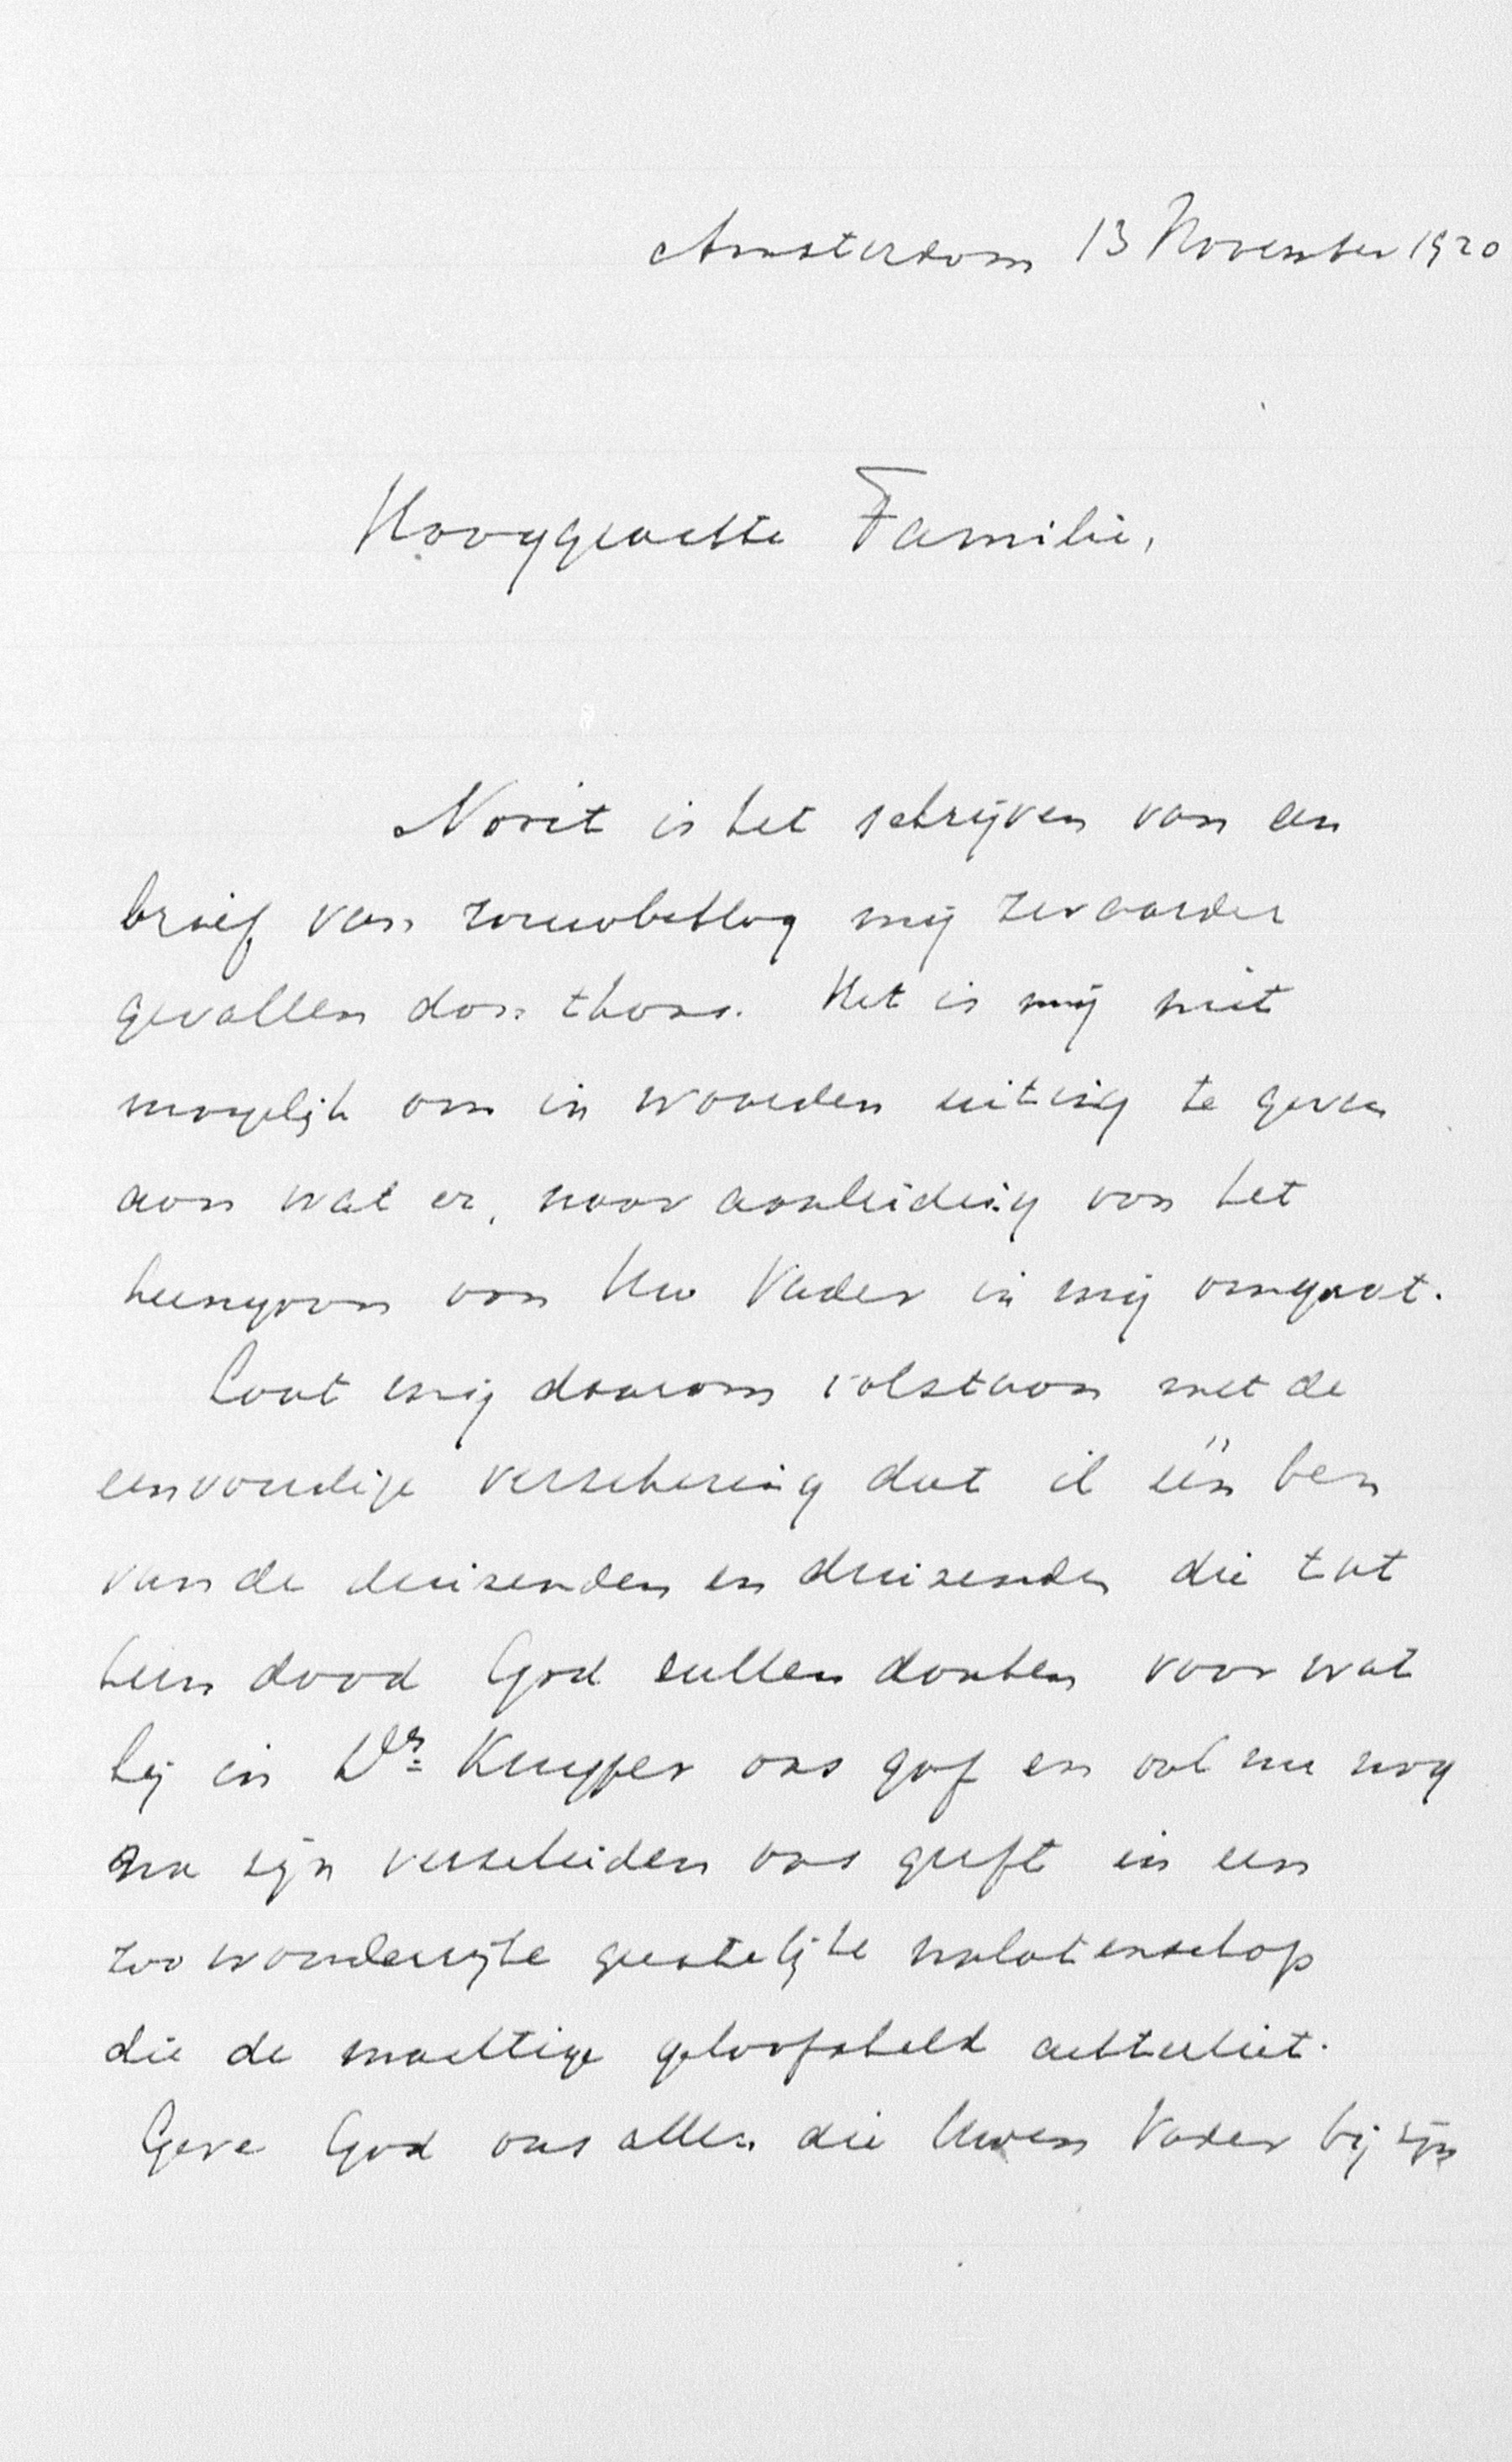 Amsterdam 13 November 1920
Hooggeachte Familie,
Nooit is het schrijven van een
brief van rouwbeklag mij zwaarder
gevallen dan thans. Het is mij niet
mogelijk om in woorden uiting te geven
aan wat er, naar aanleiding van het
heengaan van Uw Vader in mij omgaat.
Laat mij daarom volstaan met de
eenvoudige verzekering dat ik één ben
van de duizenden en duizenden die tot
hun dood God zullen danken voor wat
hij in Dr Kuyper ons gaf en ook nu nog
na zijn verscheiden ons geeft in een
zoo wonderrijke geestelijke nalatenschap
die de machtige geloofsheld achterliet.
Geve God ons allen die Uwen Vader bij zijn